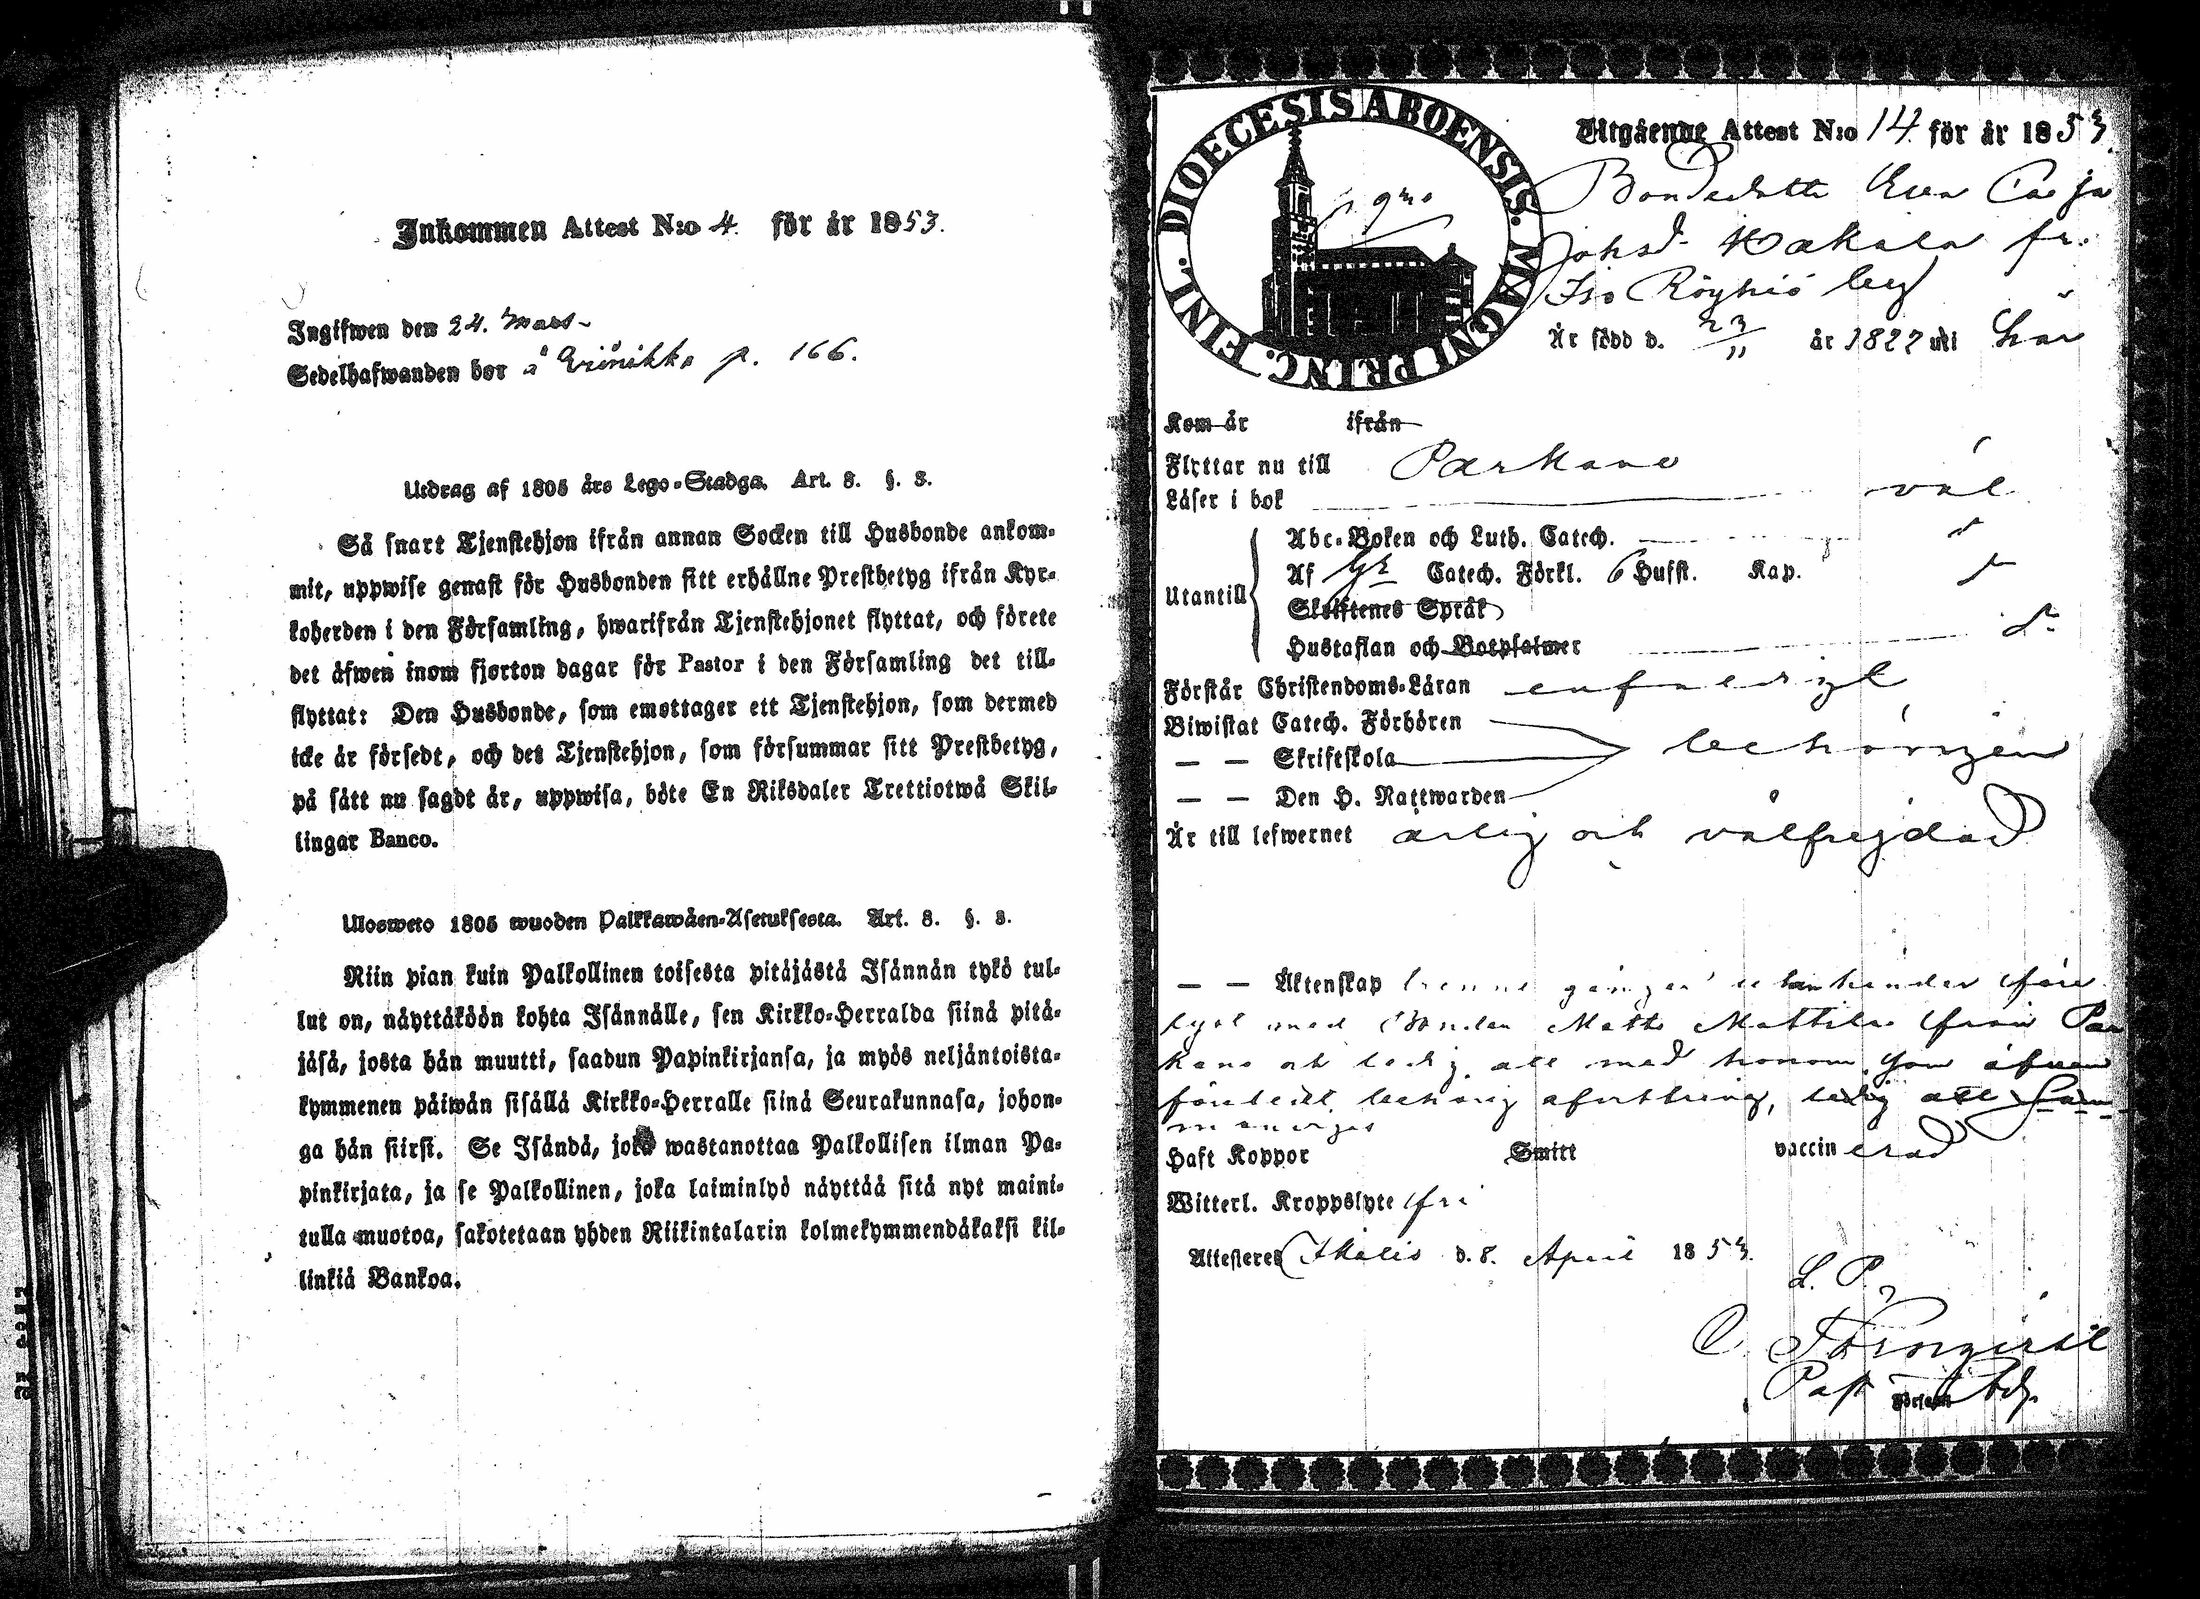 Inkommen Attest N:o 4. för år 1853.
Ingifwen den 24. Mars
Sedelhafwanden bor å p. 166.
Utdrag af 1805 års Lego-Stadga. Art. 8. §. 3.
Så snart Tjenstehjon ifrån annan Socken till Husbonde ankom-
mit, uppwise genast för Husbonden sitt erhållne Prestbetyg ifrån Kyr-
koherden i den Församling, hwarifrån Tjenstehjonet flyttat, och förete
det äfwen inom fjorton dagar för Pastor i den Församling det till-
flyttat: Den Husbonde, som emottager ett Tjenstehjon, som dermed
icke är försedt, och det Tjenstehjon, som försummar sitt Prestbetyg,
på sätt nu sagdt är, uppwisa, böte En Riksdaler Trettiotwå Skil-
lingar Banco.
Ulosweto 1805 wuoden Palkkawäen-Asetuksesta. Art. 8. §. 3.
Niin pian kuin Palkollinen toisesta pitäjästä Isännän tykö tul-
lut on, näyttäköön kohta Isännälle, sen Kirkko-Herralda siinä pitä-
jäsä, josta hän muutti, saadun Papinkirjansa, ja myös neljäntoista-
kymmenen päiwän sisällä Kirkko-Herralle siinä Seurakunnasa, johon-
ga hän siirst. Se Isändä, joka wastanottaa Palkollisen ilman Pa-
pinkirjata, ja se Palkollinen, joka laiminlyö näyttää sitä nyt maini-
tulla muotoa, sakotetaan yhden Riikintalarin kolmekymmendäkaksi kil-
linkiä Bankoa.
DIOECESIS ABOENSIS. MAGNI PRINC. FINL.
Utgående Attest N:o 14 för år 1853.
Bondedottr Eva Caja
Johsd. fr.
Iso Röyhiö by
Är född d. 23/11 år 1827 uti här
Kom år ifrån
Flyttar nu till Parkano
Läser i bok väl
Abc-Boken och Luth. Catech.
Utantill
Af Catech. Förkl. 6 Husst. Kap.
Skriftenes Språk
Hustaflan och Botpsalmer
Förstår Christendoms-Läran enfaldigt
Biwistat Catech. Förhören
— — Skriftskola behörigen
— — Den H. Nattwarden
Är till lefwernet ärlig och välfrejdad
— — Äktenskap trenne gånger utan hinder före
lyst med Bonden Matts Mattila från Par
kano och ledig att med honom, som äfven
företedt behörig afvittring, ledig att sam
manviges
Haft Koppor Smitt vaccinerad
Witterl. Kroppslyte fri
Attesteras Ikalis d. 8. April 1853.
L. P.
Past Adj.
Församl.